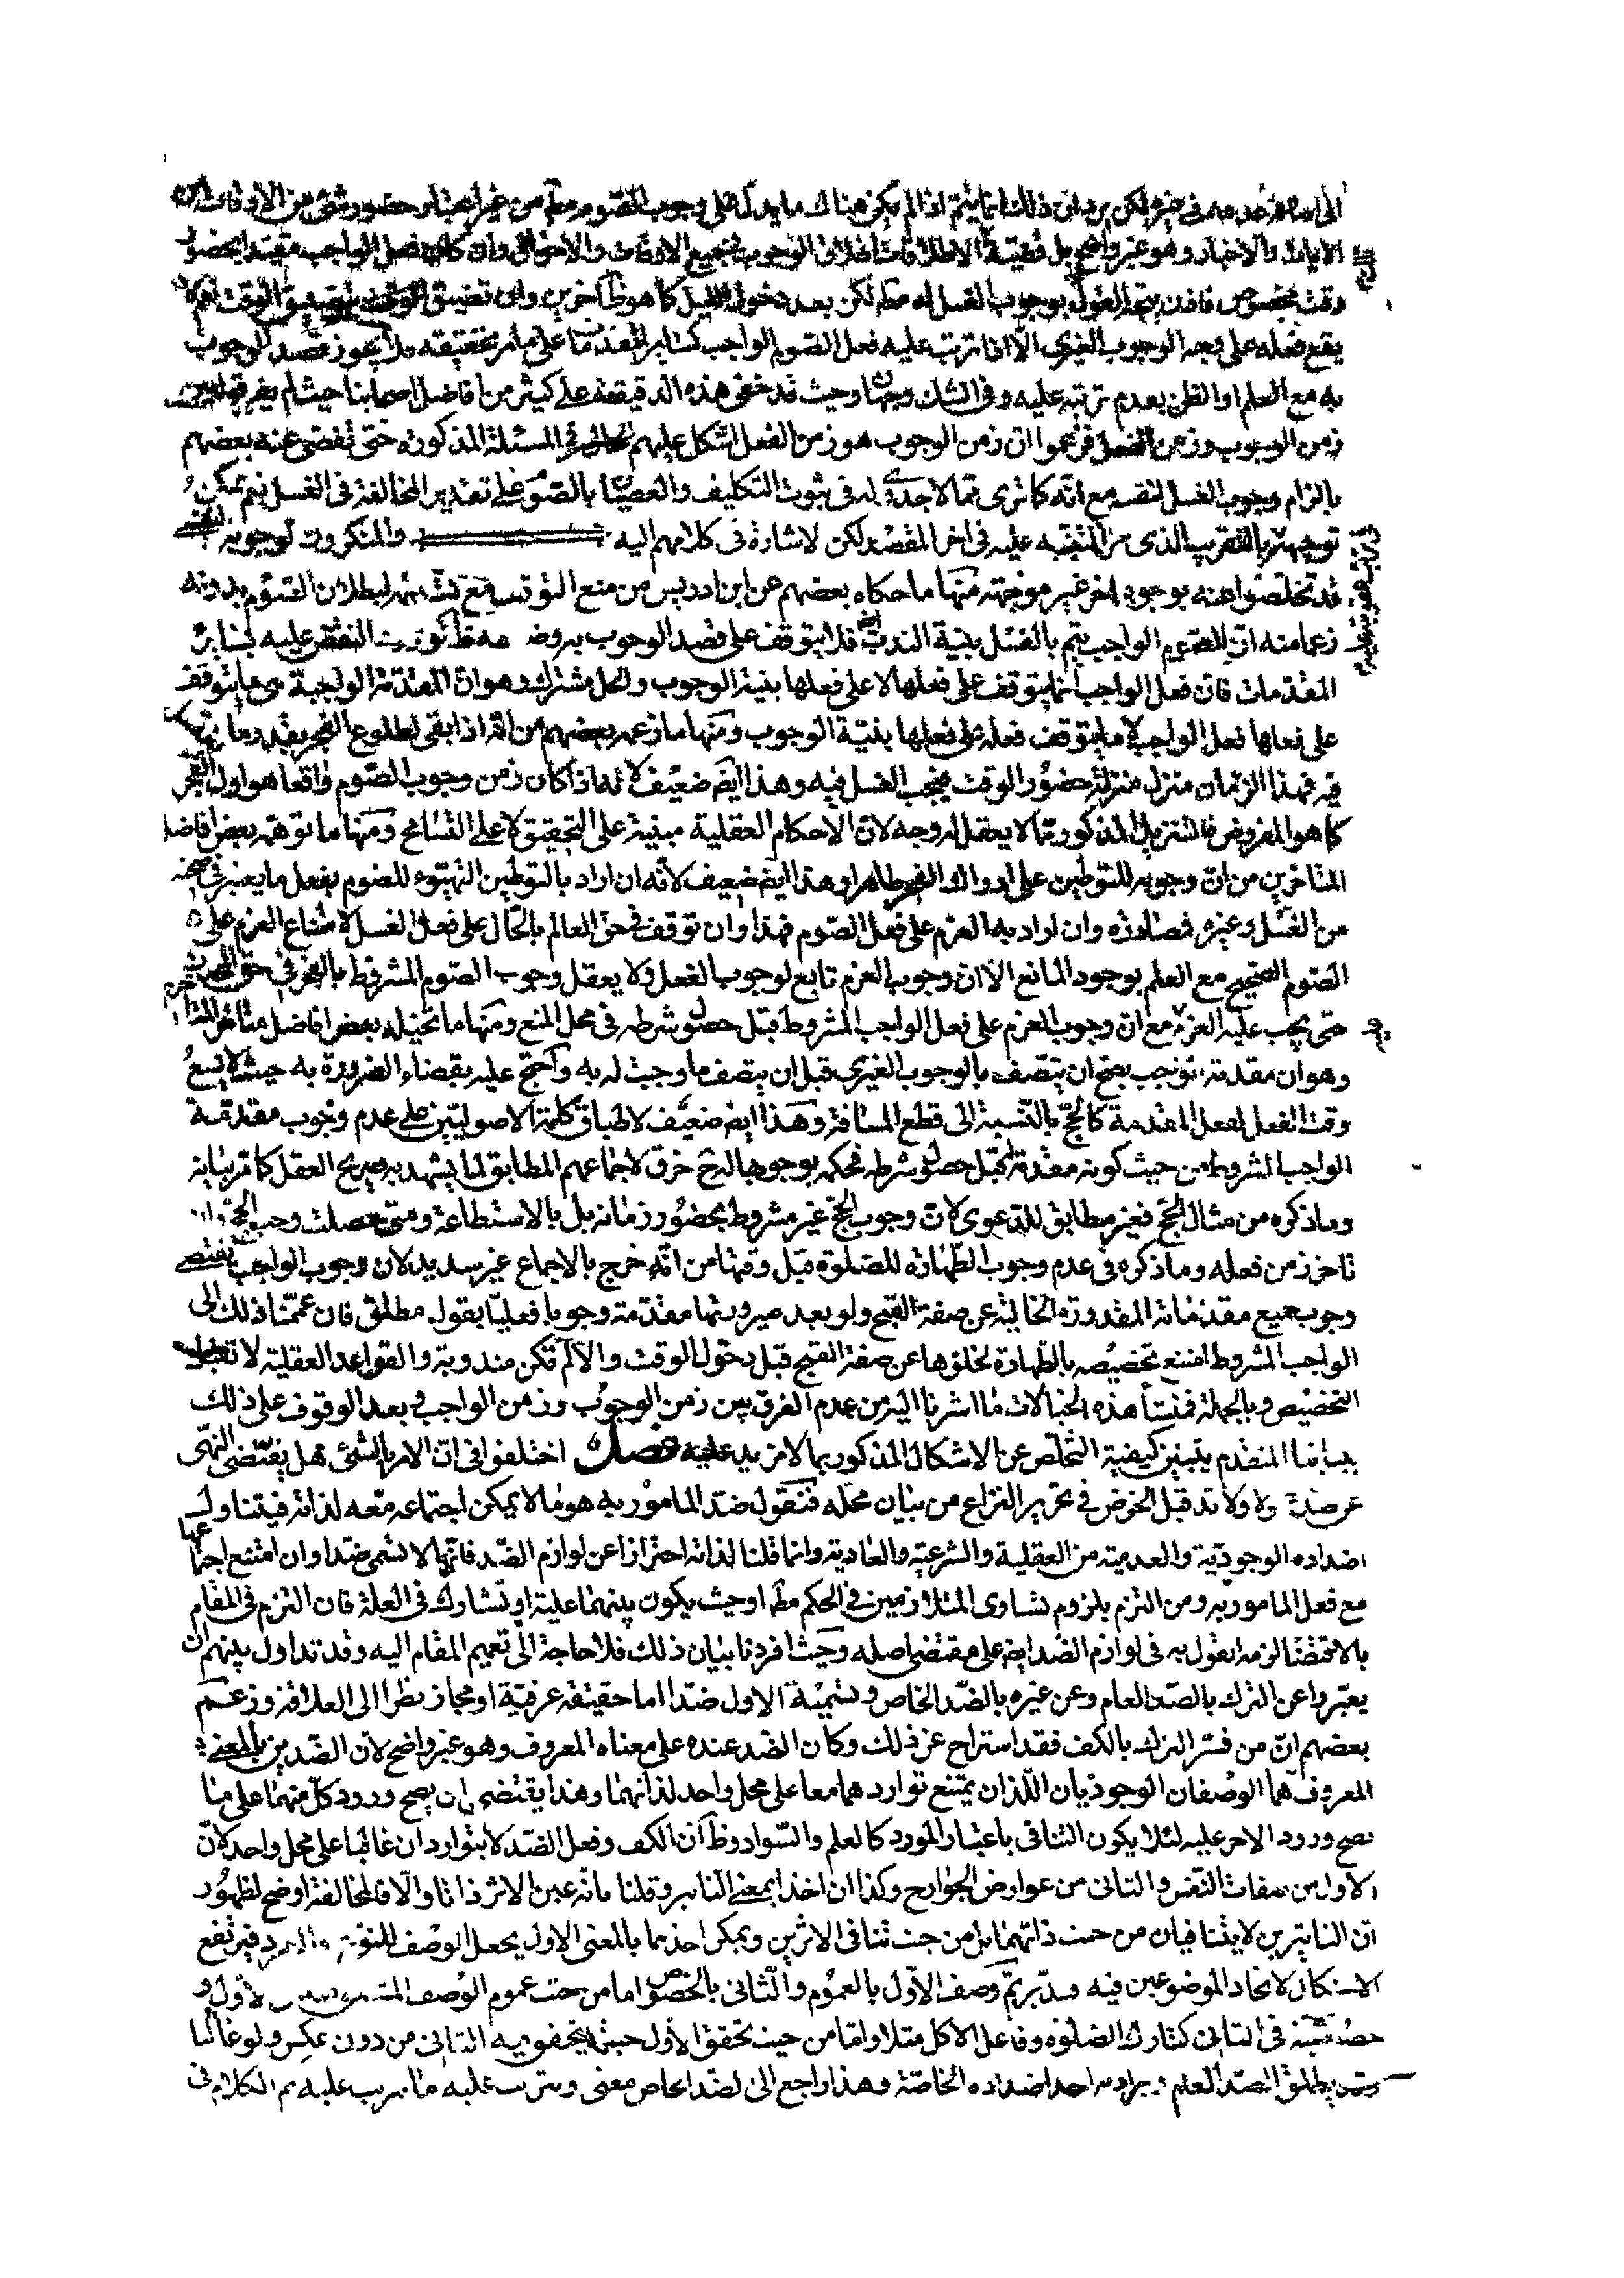 لكن يرد ان ذلك انما يتم اذا لم يكن هناك ما يدل على وجوب الصوم مطلقا من غير اعتبار حضور شئ من الاوقات
الايات والاخبار وهو غير واضح بل قضية الاطلاقات اطلاق الوجوب لجميع الاوقات والاحوال وان كان فعل الواجب مقيدا بحضور
وقت مخصوص فاذن يتجه القول بوجوب الغسل له مطلقا لكن بعد دخول الليل كما هو ظ آخرين وان تضيق الوقت
يقع فعله على وجه الوجوب الغيري الا اذا ترتب عليه فعل الصوم الواجب كسائر المقدمات على ما مر تحقيقه فلا يجوز قصد الوجوب
به مع العلم او الظن بعدم ترتبه عليه وفي الشك وجهان وحيث قد خفي هذه الدقيقة على كثير من افاضل اصحابنا حيث لم يفرقوا بين
زمن الوجوب وزمن الفعل فزعموا ان زمن الوجوب هو زمن الفعل اشكل عليهم الحال في المسئلة المذكورة حتى تفصى عنه بعضهم
بالزام وجوب الغسل لنفسه مع انه كما ترى مما لا جدوى له في ثبوت التكليف والعصيان بالصوم على تقدير المخالفة في الغسل نعم يمكن
توجيهه بالتقريب الذي مر التنبيه عليه في اخر المقصد لكن لا شارة في كلامهم اليه والمنكرون لوجوبه لنفسه
قد تخلصوا عنه بوجوه اخر غير موجهة منها ما حكاه بعضهم عن ابن ادريس من منع التوقف مع تسليمه لبطلان الصوم بدونه
زعما منه ان الصوم الواجب يتم بالغسل بنية الندب ايضا فلا يتوقف على قصد الوجوب به وضعفه ظ لورود النقض عليه بسائر
المقدمات فان فعل الواجب انما يتوقف على فعلها لا على فعلها بنية الوجوب والحل مشترك وهو ان المقدمة الواجبة هي ما يتوقف
على فعلها فعل الواجب لا ما يتوقف فعله على فعلها بنية الوجوب ومنها ما زعمه بعضهم من انه اذا بقي لطلوع الفجر بقدر ما يتمكن
فيه فهذا الزمان منزل منزلة حضور الوقت فيجب الغسل فيه وهذا ايض ضعيف لانه اذا كان زمن وجوب الصوم واقعا هو اول الفجر
كما هو المفروض فالتنزيل المذكور مما لا يعقل له وجه لان الاحكام العقلية مبنية على التحقيق لا على التسامح ومنها ما توهمه بعض افاضل
المتاخرين من ان وجوبه للتوطين على ادراك الفجر طاهرا وهذا ايض ضعيف لانه ان اراد بالتوطين التهيؤ للصوم بفعل ما يعتبر في صحته
من الغسل وغيره فمصادرة وان اراد به العزم على فعل الصوم فهذا وان توقف في حق العالم بالحال على فعل الغسل لامتناع العزم على
الصوم الصحيح مع العلم بوجود المانع الا ان وجوب العزم تابع لوجوب الفعل ولا يعقل وجوب الصوم المشروط بالفجر في حق
حتى يجب عليه العزم مع ان وجوب العزم على فعل الواجب المشروط قبل حصول شرطه في محل المنع ومنها ما تخيله بعض افاضل متاخري المتاخرين
وهو ان مقدمة الواجب يصح ان يتصف بالوجوب الغيري قبل ان يتصف ما وجبت له به واحتج عليه بقضاء الضرورة به حيث لا يسع
وقت الفعل لفعل المقدمة كالحج بالنسبة الى قطع المسافة وهذا ايض ضعيف لاطباق كلمة الاصوليين على عدم وجوب مقدمة
الواجب المشروط من حيث كونه مقدمة له قبل حصول شرطه فحكمه بوجوبها ح خرق لاجماعهم المطابق لما يشهد به صريح العقل كما مر بيانه
وما ذكره من مثال الحج فغير مطابق للدعوى لان وجوب الحج غير مشروط بحضور زمانه بل بالاستطاعة ومتى حصلت وجب الحج وان
تاخر زمن فعله وما ذكره في عدم وجوب الطهارة للصلوة قبل وقتها من انه خرج بالاجماع غير سديد لان وجوب الواجب يقتضي
وجوب جميع مقدماته المقدورة الخالية عن صفة القبح ولو بعد صيرورتها مقدمة وجوبا فعليا بقول مطلق فان عممنا ذلك الى
الواجب المشروط امتنع تخصيصه بالطهارة لخلوها عن صفة القبح قبل دخول الوقت والا لم تكن مندوبة والقواعد العقلية لا تقبل
التخصيص وبالجملة فمنشأ هذه الخيالات ما اشرنا اليه من عدم الفرق بين زمن الوجوب وزمن الواجب وبعد الوقوف على ذلك
ببياننا المتقدم يتبين كيفية التخلص عن الاشكال المذكور بما لا مزيد عليه فصل اختلفوا في ان الامر بالشئ هل يقتضي النهي
عن ضده اولا ولا بد قبل الخوض في تحرير النزاع من بيان محله فنقول ضد المامور به هو ما لا يمكن اجتماعه معه لذاته فيتناول
اضداده الوجودية والعدمية من العقلية والشرعية والعادية وانما قلنا لذاته احترازا عن لوازم الضد فانها لا تسمى ضدا وان امتنع اجتماعها
مع فعل المامور به ومن التزم بلزوم تساوى المتلازمين في الحكم مطلقا او حيث يكون بينهما علية او تشارك في العلة فان التزم في المقام
بالاقتضاء لزمه ان يقول به في لوازم الضد ايض على مقتضى اصله وحيث افردنا بيان ذلك فلا حاجة الى تعميم المقام اليه وقد تداول بينهم ان
يعبروا عن الترك بالضد العام وعن غيره بالضد الخاص وتسمية الاول ضدا اما حقيقة عرفية او مجاز نظرا الى العلاقة وزعم
بعضهم ان من فسر الترك بالكف فقد استراح عن ذلك وكان الضد عنده على معناه المعروف وهو غير واضح لان الضدين بالمعنى
المعروف هما الوصفان الوجوديان اللذان يمتنع تواردهما معا على محل واحد لذاتهما وهذا يقتضي ان يصح ورود كل منهما على ما
يصح ورود الاخر عليه لئلا يكون التنافي باعتبار المورد كالعلم والسواد وظ ان الكف وفعل الضد لا يتواردان غالبا على محل واحد لان
الاول من صفات النفس والثاني من عوارض الجوارح وكذا ان اخذا بمعنى التاثير وقلنا بانه عين الاثر ذاتا والا فالمخالفة اوضح لظهور
ان التاثيرين لا يتنافيان من حيث ذاتهما بل من حيث تنافي الاثرين ويمكن اخذهما بالمعنى الاول بجعل الوصف فيرتفع
الاشكال لاتحاد الموضوعين فيه وصف الاول بالعموم والثاني بالخصوص اما من حيث عموم الوصف الاول و
في الثاني كتارك الصلوة وفاعل الاكل مثلا واما من حيث تحقق الاول حيثما يتحقق فيه الثاني من دون عكس ولو غالبا
وقد يطلق الضد العام ويراد به احد اضداده الخاصة وهذا راجع الى الضد الخاص معنى ويترتب عليه ما يترتب عليه ثم الكلام في